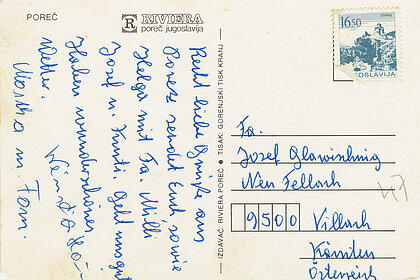 POREČ
RIVIERA
poreč jugoslavija
Recht liebe Grüße aus
Porec sendet Euch, sowie
Helga mit Fa. Milli
Josef u. Geht uns gut
Haben wunderschönes
Wetter.
Martha m. Fam.
IZDAVAČ: RIVIERA POREČ ● TISAK: GORENJSKI TISK KRANJ
16.50
JUGOSLAVIJA
Fa.
Josef Glawischnig
Neu Fellach
9500 Villach
Kärnten
Österreich
47